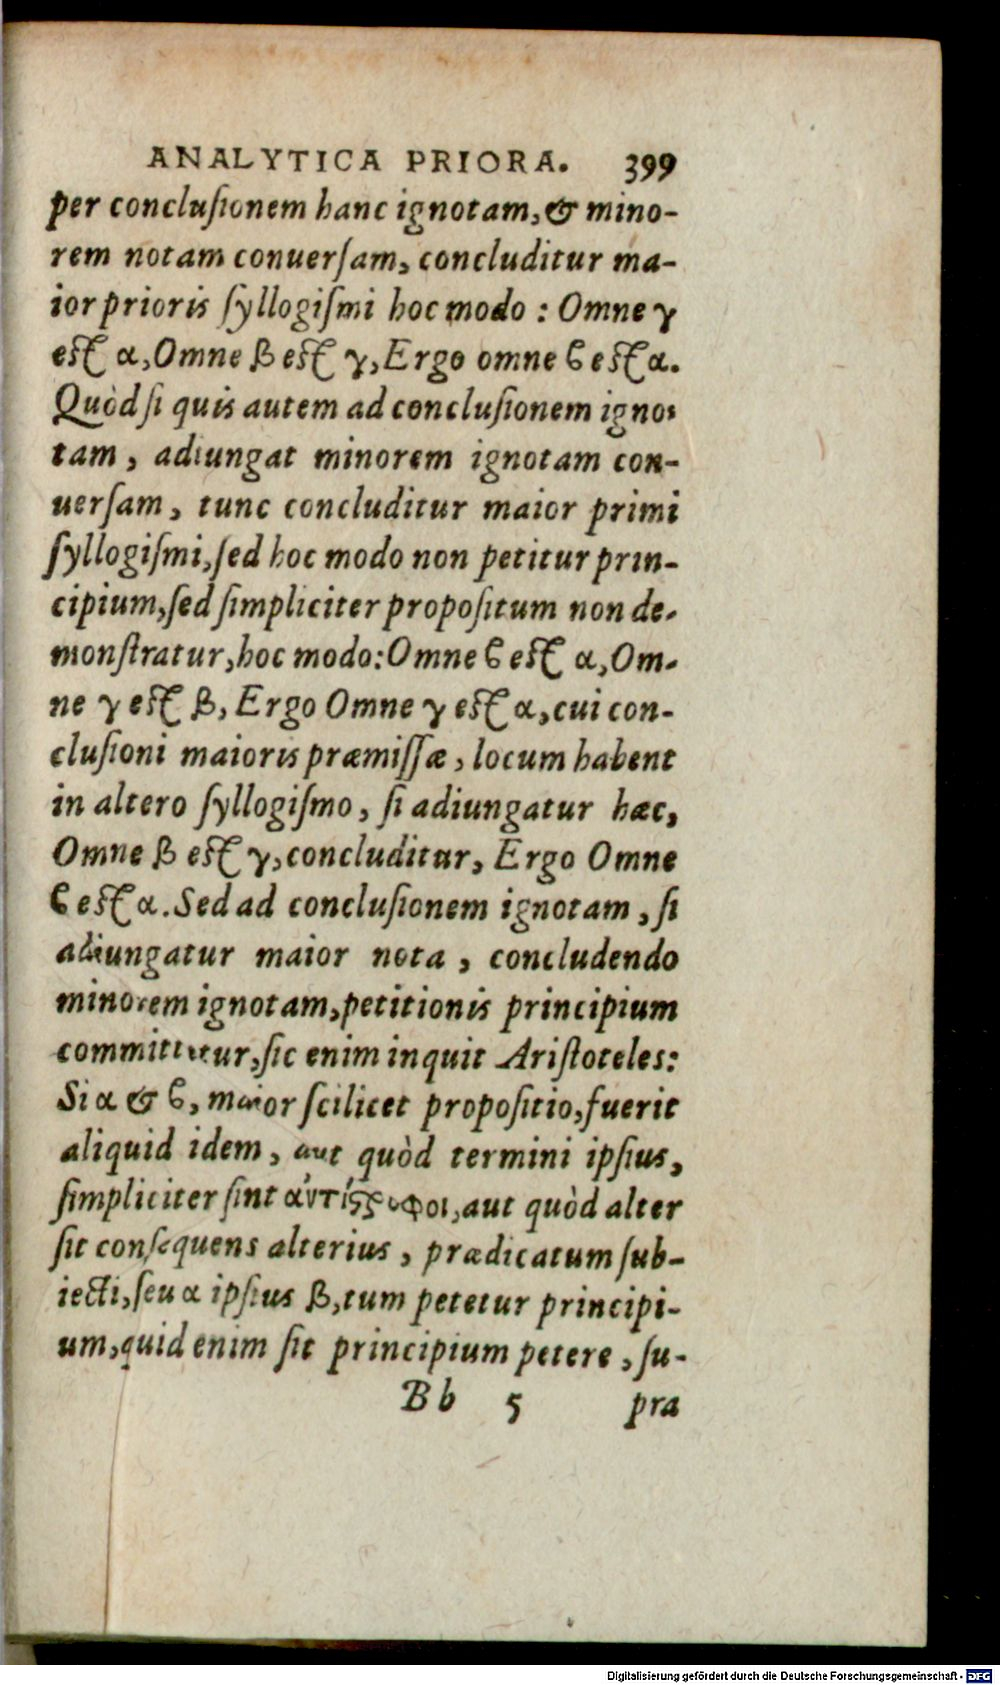 ANALYTICA PRIORA. 399
per concluſionem hanc ignotam, & mino-
rem notam conuerſam, concluditur ma-
ior prioris ſyllogiſmi hoc modo : Omne γ
eſt α, Omne β eſt γ, Ergo omne ϐ eſt α.
Quòd ſi quis autem ad concluſionem igno-
tam, adiungat minorem ignotam con-
uerſam, tunc concluditur maior primi
ſyllogiſmi, ſed hoc modo non petitur prin-
cipium, ſed ſimpliciter propoſitum non de-
monſtratur, hoc modo: Omne ϐ eſt α, Om-
ne γ eſt β, Ergo Omne γ eſt α, cui con-
cluſioni maioris præmiſſæ, locum habent
in altero ſyllogiſmo, ſi adiungatur hæc,
Omne β eſt γ, concluditur, Ergo Omne
ϐ eſt α. Sed ad concluſionem ignotam, ſi
adiungatur maior nota, concludendo
minorem ignotam, petitionis principium
committetur, ſic enim inquit Ariſtoteles:
Si α & ϐ, maior ſcilicet propoſitio, fuerit
aliquid idem, aut quòd termini ipſius,
ſimpliciter ſint ἀντίςροφοι, aut quòd alter
ſit conſequens alterius, prædicatum ſub-
iecti, ſeu α ipſius β, tum petetur principi-
um, quid enim ſit principium petere, ſu-
Bb 5 pra
Digitalisierung gefördert durch die Deutsche Forschungsgemeinschaft - DFG